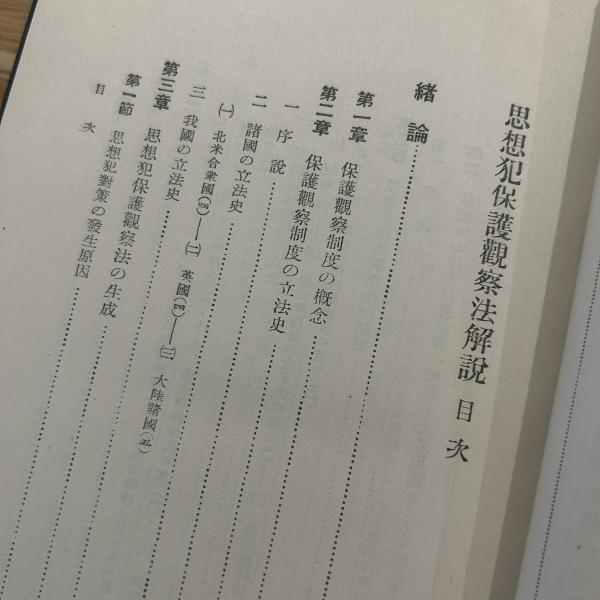 思想犯保護觀察法解說 目次
緖論
第一章 保護觀察制度の槪念
第二章 保護觀察制度の立法史
一 序說
二 諸國の立法史
㈠ 北米合衆國(四)——㈡ 英國(四)——㈢ 大陸諸國(五)
三 我國の立法史
第三章 思想犯保護觀察法の生成
第一節 思想犯對策の發生原因
目次